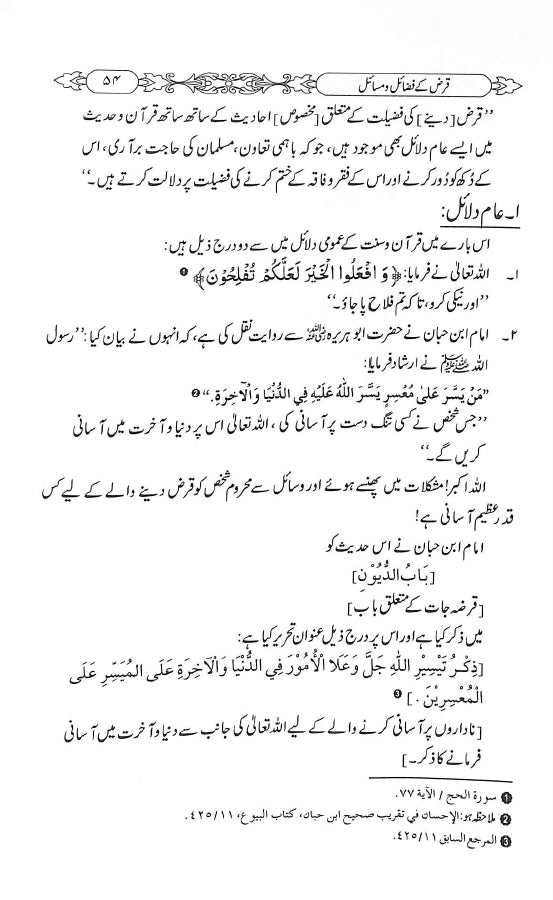 قرض کے فضائل و مسائل ۵۴
’’قرض [دینے] کی فضیلت کے متعلق [مخصوص] احادیث کے ساتھ ساتھ قرآن و حدیث
میں ایسے عام دلائل بھی موجود ہیں، جو کہ باہمی تعاون، مسلمان کی حاجت برآری، اس
کے دُکھ کو دُور کرنے اور اس کے فقر و فاقہ کے ختم کرنے کی فضیلت پر دلالت کرتے ہیں۔‘‘
ا۔ عام دلائل:
اس بارے میں قرآن و سنت کے عمومی دلائل میں سے دو درج ذیل ہیں:
ا۔ اللہ تعالیٰ نے فرمایا: ﴿وَ افْعَلُوا الْخَيْرَ لَعَلَّكُمْ تُفْلِحُوْنَ﴾ ❶
’’اور نیکی کرو، تاکہ تم فلاح پا جاؤ۔‘‘
۲۔ امام ابن حبان نے حضرت ابو ہریرہ رضی اللہ عنہ سے روایت نقل کی ہے، کہ انہوں نے بیان کیا: ’’رسول
اللہ ﷺ نے ارشاد فرمایا:
”مَنْ يَسَّرَ عَلىٰ مُعْسِرٍ يَسَّرَ اللهُ عَلَيْهِ فِي الدُّنْيَا وَالْآخِرَةِ.“ ❷
’’جس شخص نے کسی تنگ دست پر آسانی کی، اللہ تعالیٰ اس پر دنیا و آخرت میں آسانی
کریں گے۔‘‘
اللہ اکبر! مشکلات میں پھنسے ہوئے اور وسائل سے محروم شخص کو قرض دینے والے کے لیے کس
قدر عظیم آسانی ہے!
امام ابن حبان نے اس حدیث کو
[بَابُ الدُّيُوْنِ]
[قرضہ جات کے متعلق باب]
میں ذکر کیا ہے اور اس پر درج ذیل عنوان تحریر کیا ہے:
[ذِكْرُ تَيْسِيْرِ اللهِ جَلَّ وَعَلَا الْأُمُوْرَ فِي الدُّنْيَا وَالْآخِرَةِ عَلَى الْمُيَسِّرِ عَلَى
الْمُعْسِرِيْنَ.] ❸
[ناداروں پر آسانی کرنے والے کے لیے اللہ تعالیٰ کی جانب سے دنیا و آخرت میں آسانی
فرمانے کا ذکر۔]
❶ سورة الحج / الآية ۷۷.
❷ ملاحظہ ہو: الإحسان في تقريب صحيح ابن حبان، كتاب البيوع، ۴۲۵/۱۱.
❸ المرجع السابق ۴۲۵/۱۱.